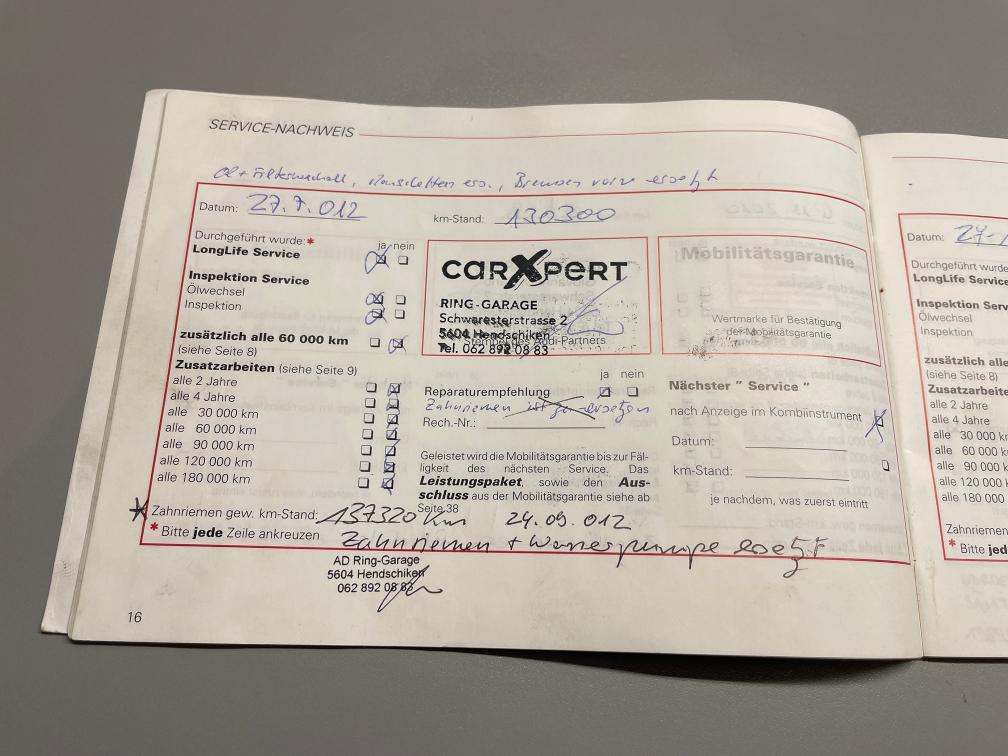 SERVICE-NACHWEIS
Öl + Filterwechsel, Manschetten ers., Bremsen vorne ersetzt
Datum: 27.7.012 km-Stand: 130300
Durchgeführt wurde:* ja nein
LongLife Service
Inspektion Service
Ölwechsel
Inspektion
zusätzlich alle 60 000 km
(siehe Seite 8)
Zusatzarbeiten (siehe Seite 9)
alle 2 Jahre
alle 4 Jahre
alle 30 000 km
alle 60 000 km
alle 90 000 km
alle 120 000 km
alle 180 000 km
carXpert
RING-GARAGE
Schwaresterstrasse 2
5604 Hendschiken
Stempel des Audi-Partners
Tel. 062 892 08 83
ja nein
Reparaturempfehlung
Zahnriemen ist zu ersetzen
Rech.-Nr.:
Geleistet wird die Mobilitätsgarantie bis zur Fäl-
ligkeit des nächsten Service. Das
Leistungspaket, sowie den Aus-
schluss aus der Mobilitätsgarantie siehe ab
Seite 38
Mobilitätsgarantie
Wertmarke für Bestätigung
der Mobilitätsgarantie
Nächster " Service "
nach Anzeige im Kombiinstrument
Datum:
km-Stand:
je nachdem, was zuerst eintritt
* Zahnriemen gew. km-Stand: 137320 km 24.09.012
* Bitte jede Zeile ankreuzen Zahnriemen + Wasserpumpe ersetzt
AD Ring-Garage
5604 Hendschiken
062 892 08 83
16
Datum: 27.
Durchgeführt
LongLife Service
Inspektion Serv
Ölwechsel
Inspektion
zusätzlich alle 6
(siehe Seite 8)
Zusatzarbeiten
alle 2 Jahre
alle 4 Jahre
alle 30 000 k
alle 60 000
alle 90 000
alle 120 000
alle 180 000
Zahnriemen
* Bitte jed